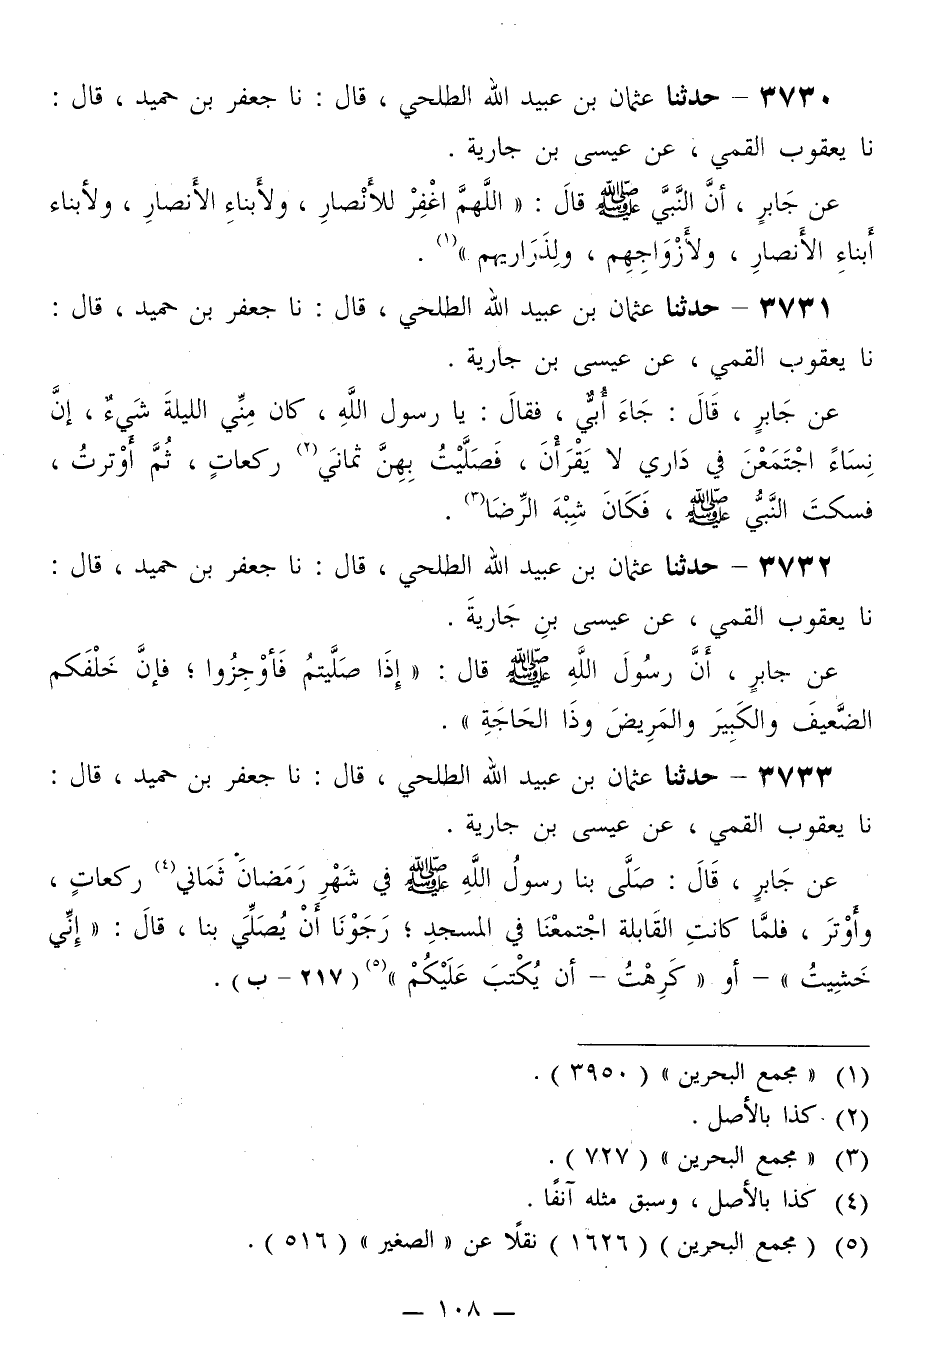 ٣٧٣٠ – حدثنا عثمان بن عبيد الله الطلحي ، قال : نا جعفر بن حميد ، قال :
نا يعقوب القمي ، عن عيسى بن جارية .
عن جَابرٍ ، أنَّ النَّبيَّ ﷺ قالَ : « اللَّهمَّ اغْفِرْ للأَنْصارِ ، ولأَبناءِ الأَنصارِ ، ولأبناء
أَبناءِ الأَنصارِ ، ولأَزْوَاجِهِم ، ولِذَرَاريهم »(١) .
٣٧٣١ – حدثنا عثمان بن عبيد الله الطلحي ، قال : نا جعفر بن حميد ، قال :
نا يعقوب القمي ، عن عيسى بن جارية .
عن جَابرٍ ، قَالَ : جَاءَ أُبيٌّ ، فقالَ : يا رسول اللَّهِ ، كان مِنِّي الليلةَ شَيءٌ ، إنَّ
نِسَاءً اجْتَمَعْنَ في دَاري لا يَقْرَأْنَ ، فَصَلَّيْتُ بِهِنَّ ثمانيَ(٢) ركعاتٍ ، ثُمَّ أَوْترتُ ،
فسكتَ النَّبيُّ ﷺ ، فَكَانَ شِبْهَ الرِّضَا(٣) .
٣٧٣٢ – حدثنا عثمان بن عبيد الله الطلحي ، قال : نا جعفر بن حميد ، قال :
نا يعقوب القمي ، عن عيسى بنِ جَاريةَ .
عن جابرٍ ، أَنَّ رسُولَ اللَّهِ ﷺ قال : « إِذَا صَلَّيتمُ فَأَوْجِزُوا ؛ فإنَّ خَلْفَكم
الضَّعيفَ والكَبِيرَ والمَرِيضَ وذَا الحَاجَةِ » .
٣٧٣٣ – حدثنا عثمان بن عبيد الله الطلحي ، قال : نا جعفر بن حميد ، قال :
نا يعقوب القمي ، عن عيسى بن جارية .
عن جَابرٍ ، قَالَ : صَلَّى بنا رسولُ اللَّهِ ﷺ في شَهْرِ رَمَضانَ ثَمَاني(٤) ركعاتٍ ،
وأَوْترَ ، فلمَّا كانتِ القَابلة اجْتمعْنَا في المسجدِ ؛ رَجَوْنَا أَنْ يُصَلِّيَ بنا ، قالَ : « إنِّي
خَشِيتُ » – أو « كَرِهْتُ – أن يُكْتبَ عَلَيْكُمْ »(٥) ( ٢١٧ – ب ) .
(١) « مجمع البحرين » ( ٣٩٥٠ ) .
(٢) كذا بالأصل .
(٣) « مجمع البحرين » ( ٧٢٧ ) .
(٤) كذا بالأصل ، وسبق مثله آنفًا .
(٥) ( مجمع البحرين ) ( ١٦٢٦ ) نقلًا عن « الصغير » ( ٥١٦ ) .
— ١٠٨ —